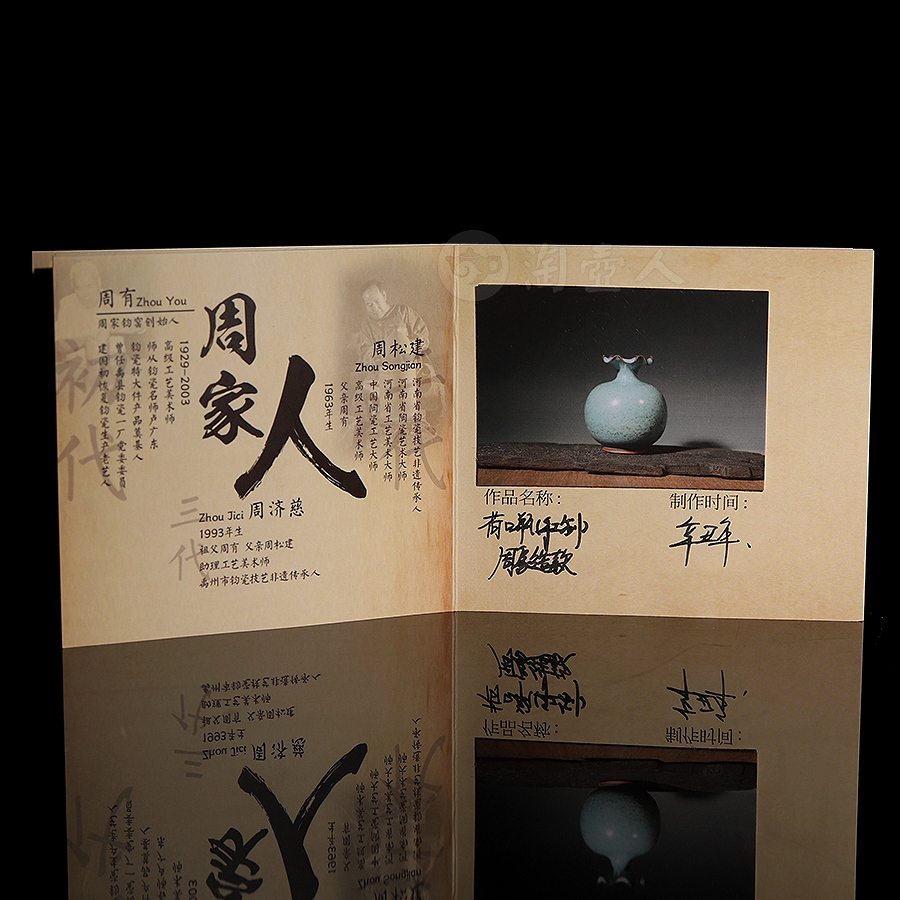 淘壶人
周有 Zhou You
周家钧窑创始人
1929-2003
高级工艺美术师
师从钧瓷名师卢广东
钧瓷特大件产品奠基人
曾任禹县钧瓷一厂党委委员
建国初恢复钧瓷生产老艺人
初代
周家人
周松建
Zhou Songjian
河南省钧瓷技艺非遗传承人
河南省陶瓷艺术大师
河南省工艺美术大师
中国陶瓷工艺大师
高级工艺美术师
父亲周有
1963年生
三代
Zhou Jici 周济慈
1993年生
祖父周有 父亲周松建
助理工艺美术师
禹州市钧瓷技艺非遗传承人
作品名称：
周家窑款
制作时间：
辛丑年.